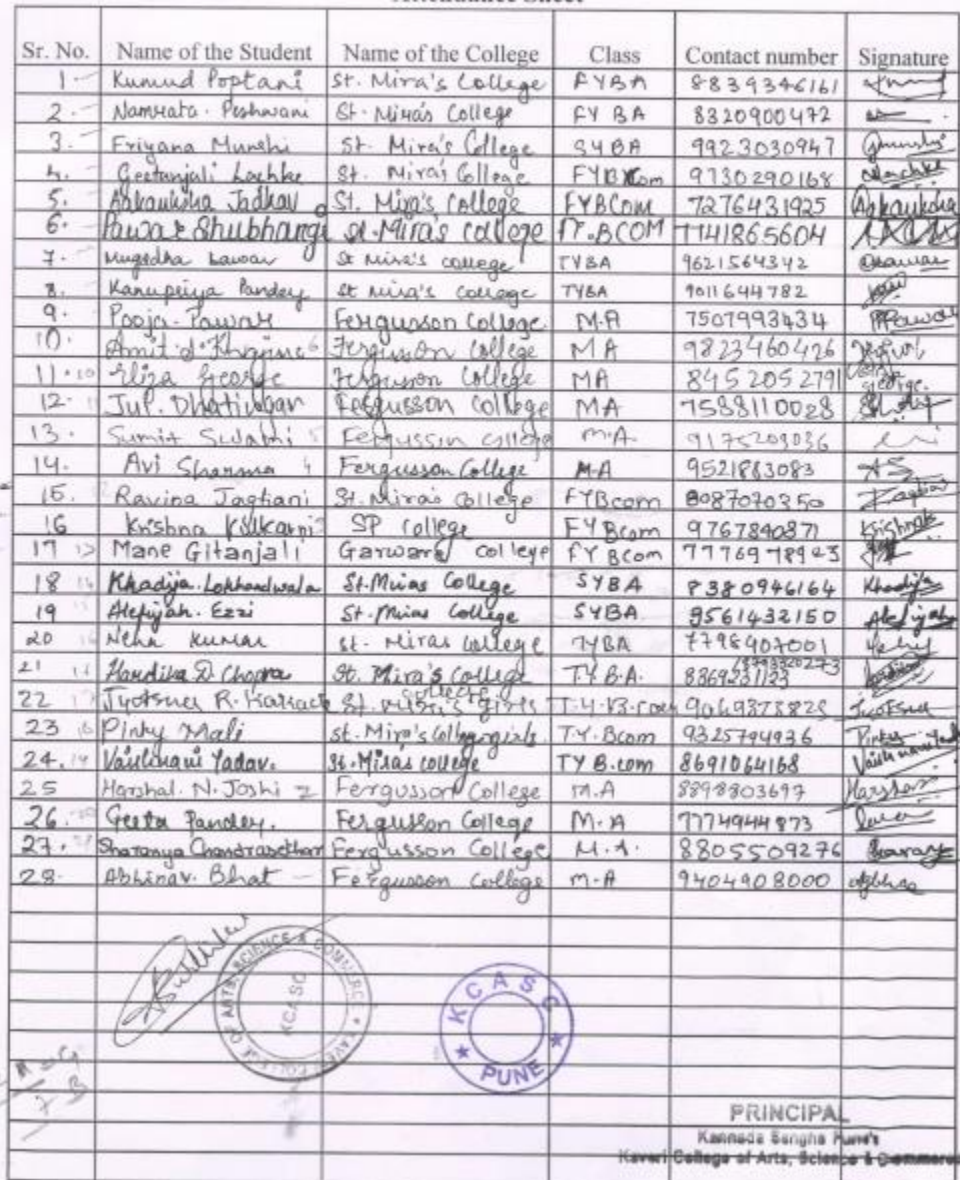 Attendance Sheet
Sr. No. Name of the Student Name of the College Class Contact number Signature
1- Kumud Poptani St. Mira's College FYBA 8839346161
2. Namrata. Peshwani St. Mira's College FY BA 8320900472
3. Friyana Munshi St. Mira's College SYBA 9923030947 Gmunshi
4. Geetanjali Lachke St. Mira's College FYBCom 9730290168 Lachke
5. Ankanksha Jadhav St. Mira's College FYBCom 7276431925 Ankanksha
6. Pawar Shubhangi st. Mira's college FY.BCOM 7741865604
7. Mugdha Lawar St Mira's college TYBA 9621564342
8. Kanupriya Pandey St Mira's College TYBA 9011644782
9. Pooja. Pawar Fergusson College M.A 7507993434 PPawar
10. Amit d. Fergusson College MA 9823460426
11. 10 Eliza George Fergusson College MA 8452052791 George.
12. Jui. Fergusson College MA 7588110028
13. Sumit Fergussin College M.A. 9175203036
14. Avi Sharma Fergusson College M.A 9521883083 AS
15. Ravina Jagtiani St. Mira's College FYBcom 8087070350
16 Krishna Kulkarni SP College FYBcom 9767840871 Krishnak
17 Mane Gitanjali Garware college FY BCom 7776978923
18 Khadija. Lokhandwala St. Miras College SYBA 8380946164 Khadija
19 Alefiyah. Ezzi St. Miras College SYBA 9561432150 Alefiyah
20 Neha Kumar St. Miras College TYBA 7798407001 Neha
21 Hardika D Chopra St. Mira's College T.Y.B.A. 8369231123
22 Jyotsna R. St. Mira's girls college T.Y.B.com 9049873825 Jyotsna
23 Pinky Mali St. Mira's College girls T.Y. Bcom 9325794936 Pinky
24. Vaishnavi Yadav. St. Miras college TY B.com 8691064168 Vaishnavi Yadav
25 Harshal. N. Joshi Fergusson College M.A 8898803697 Harshal
26. Geeta Pandey. Fergusson College M.A 7774944873
27. Sharanya Chandrasekhar Fergusson College M.A. 8805509276 Sharanya
28. Abhinav. Bhat Fergusson College M.A 9404908000 Abhinav
COLLEGE OF ARTS, SCIENCE & COMMERCE
KCASC
KCASC
PUNE
PRINCIPAL
Kannada Sangha Pune's
Kaveri College of Arts, Science & Commerce